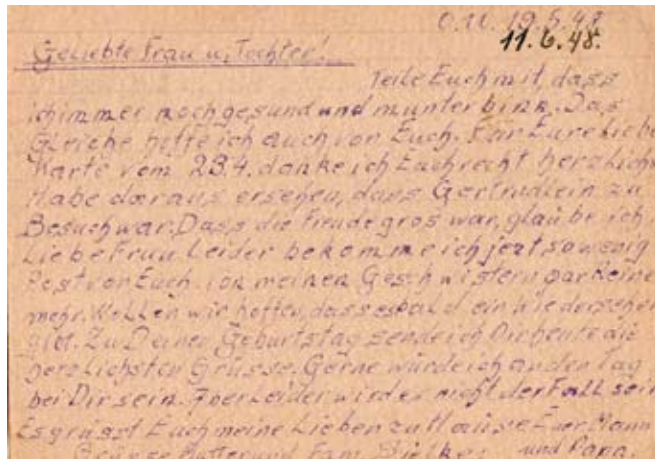 O.U. 19.5.48
11.6.48.
Geliebte Frau u. Tochter!
Teile Euch mit, dass
ich immer noch gesund und munter bin. Das
Gleiche hoffe ich auch von Euch. Für Eure liebe
Karte vom 23.4. danke ich Euch recht herzlich
Habe daraus ersehen, dass Gertrudlein zu
Besuch war. Dass die Freude gros war, glaube ich.
Liebe Frau Leider bekomme ich jezt so wenig
Post von Euch. Von meinen Geschwistern gar keine
mehr. Wollen wir hoffen, dass es bald ein Wiedersehen
gibt. Zu Deinen Geburtstag sende ich Dir heute die
herzlichsten Grüsse. Gerne würde ich an den Tag
bei Dir sein. Aber Leider wird es nicht der Fall sein
Es grüsst Euch meine Lieben zu Hause Euer Mann
Grüsse Mutter und Fam. und Papa.